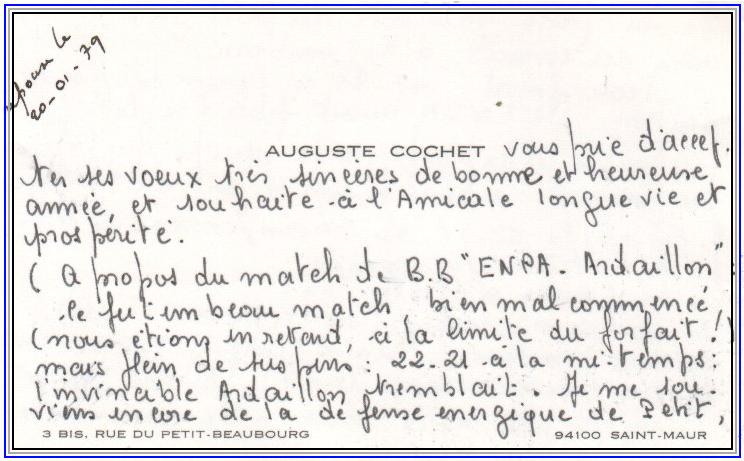 réponse le
20-01-79
AUGUSTE COCHET vous prie d'accep.
ter ses voeux très sincères de bonne et heureuse
année, et souhaite à l'Amicale longue vie et
prospérité.
( A propos du match de B.B "ENPA - Ardaillon" :
ce fut un beau match bien mal commencé
(nous étions en retard, à la limite du forfait !)
mais plein de suspens : 22-21 à la mi-temps :
l'invincible Ardaillon tremblait. Je me sou-
viens encore de la défense energique de Petit,
3 BIS, RUE DU PETIT-BEAUBOURG 94100 SAINT-MAUR